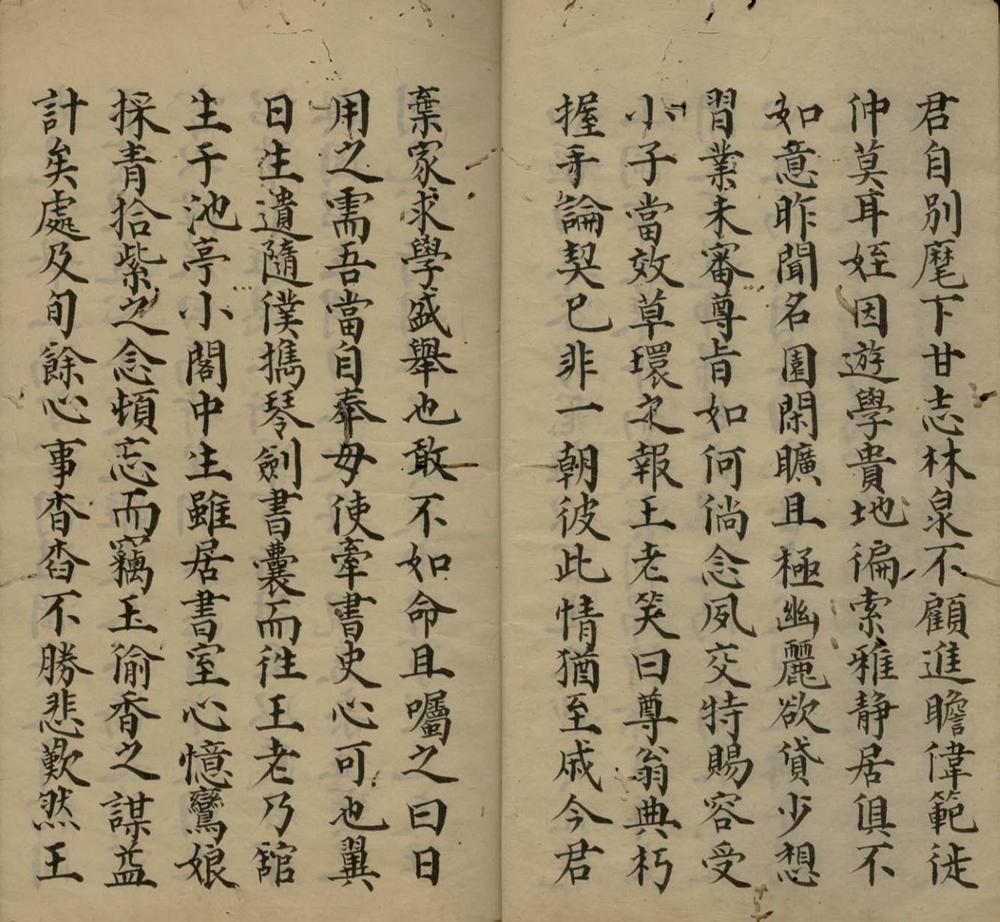 君自別麾下甘志林泉不顧進瞻偉範徙
仲莫耳姪因遊學貴地徧索雅静居俱不
如意昨聞名園閑曠且極幽麗欲貸少憩
習業未審尊旨如何倘念夙交特賜容受
小子當效草環之報王老笑曰尊翁與朽
握手論契已非一朝彼此情猶至戚今君
棄家求學盛舉也敢不如命且囑之曰日
用之需吾當自奉毋使牽書史心可也翼
日生遣隨僕擕琴劍書囊而徃王老乃舘
生于池亭小閣中生雖居書室心憶鸞娘
採青拾紫之念頓忘而竊玉偷香之謀益
計矣處及旬餘心事杳杳不勝悲歎然王